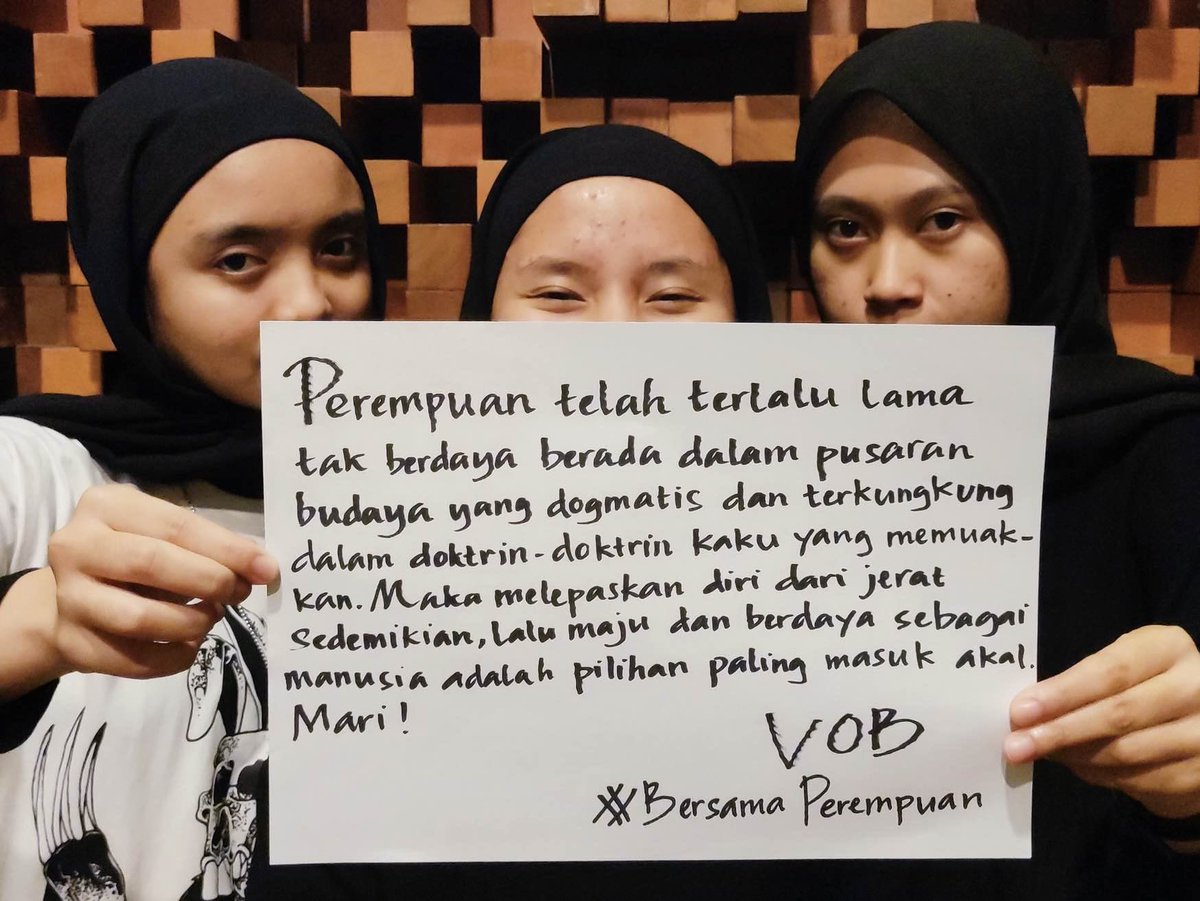 Perempuan telah terlalu lama
tak berdaya berada dalam pusaran
budaya yang dogmatis dan terkungkung
dalam doktrin-doktrin kaku yang memuak-
kan. Maka melepaskan diri dari jerat
sedemikian, lalu maju dan berdaya sebagai
manusia adalah pilihan paling masuk akal.
Mari!
VOB
#Bersama Perempuan